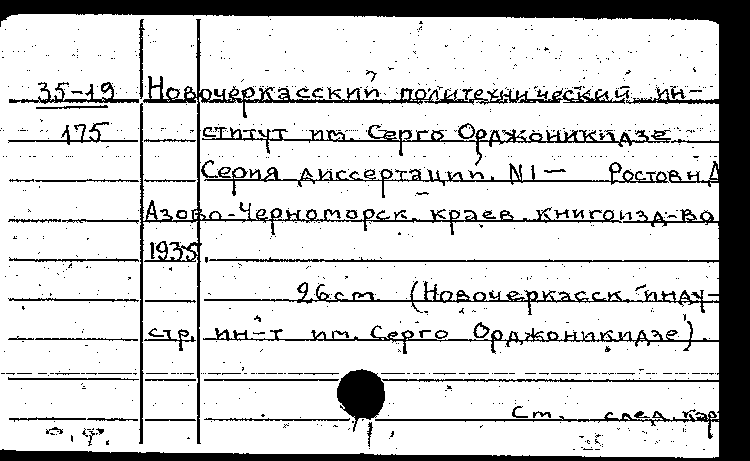 35-19 Новочеркасский политехнический ин-
175 ститут им. Серго Орджоникидзе.
Серия диссертаций. N1 — Ростов н. Д
Азово-Черноморск. краев. книгоизд-во
1935.
26 см (Новочеркасск. инду-
стр. ин-т им. Серго Орджоникидзе).
См. след. кар